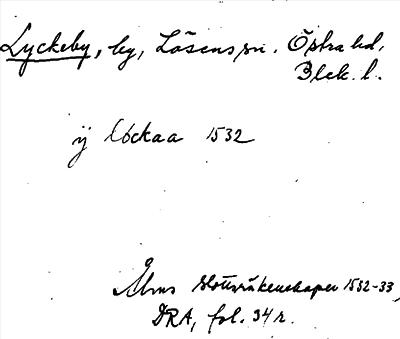 Lyckeby, by, Lösens sn. Östra hd,
Blek. l.
ÿ Löckaa 1532
Elms slottsräkenskaper 1532-33,
DRA, fol. 34 r.